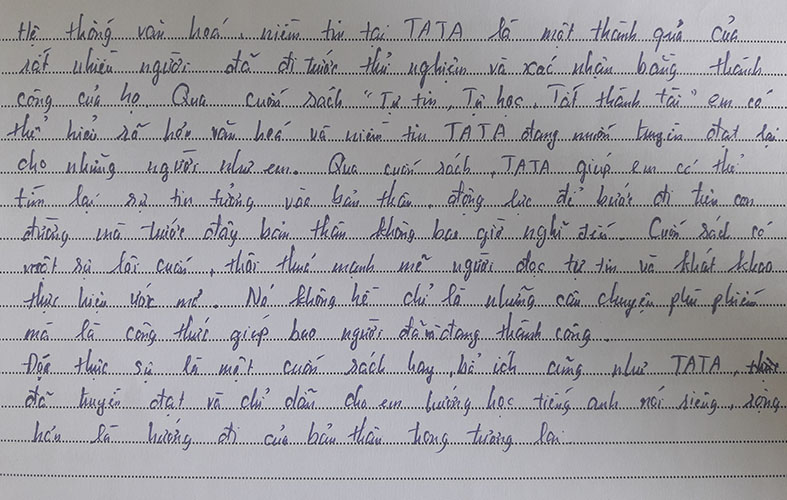 Hệ thống văn hoá, niềm tin tại TATA là một thành quả của
rất nhiều người đã đi trước thử nghiệm và xác nhận bằng thành
công của họ. Qua cuốn sách "Tự tin, Tự học, Tất thành tài" em có
thể hiểu rõ hơn văn hoá và niềm tin TATA đang muốn truyền đạt lại
cho những người như em. Qua cuốn sách, TATA giúp em có thể
tìm lại sự tin tưởng vào bản thân, động lực để bước đi trên con
đường mà trước đây bản thân không bao giờ nghĩ đến. Cuốn sách có
một sự lôi cuốn, thôi thúc mạnh mẽ người đọc tự tin và khát khao
thực hiện ước mơ. Nó không hề chỉ là những câu chuyện phù phiếm
mà là công thức giúp bao người đã và đang thành công.
Đây thực sự là một cuốn sách hay, bổ ích cũng như TATA,
đã truyền đạt và chỉ dẫn cho em hướng học tiếng anh nói riêng, rộng
hơn là hướng đi của bản thân trong tương lai.